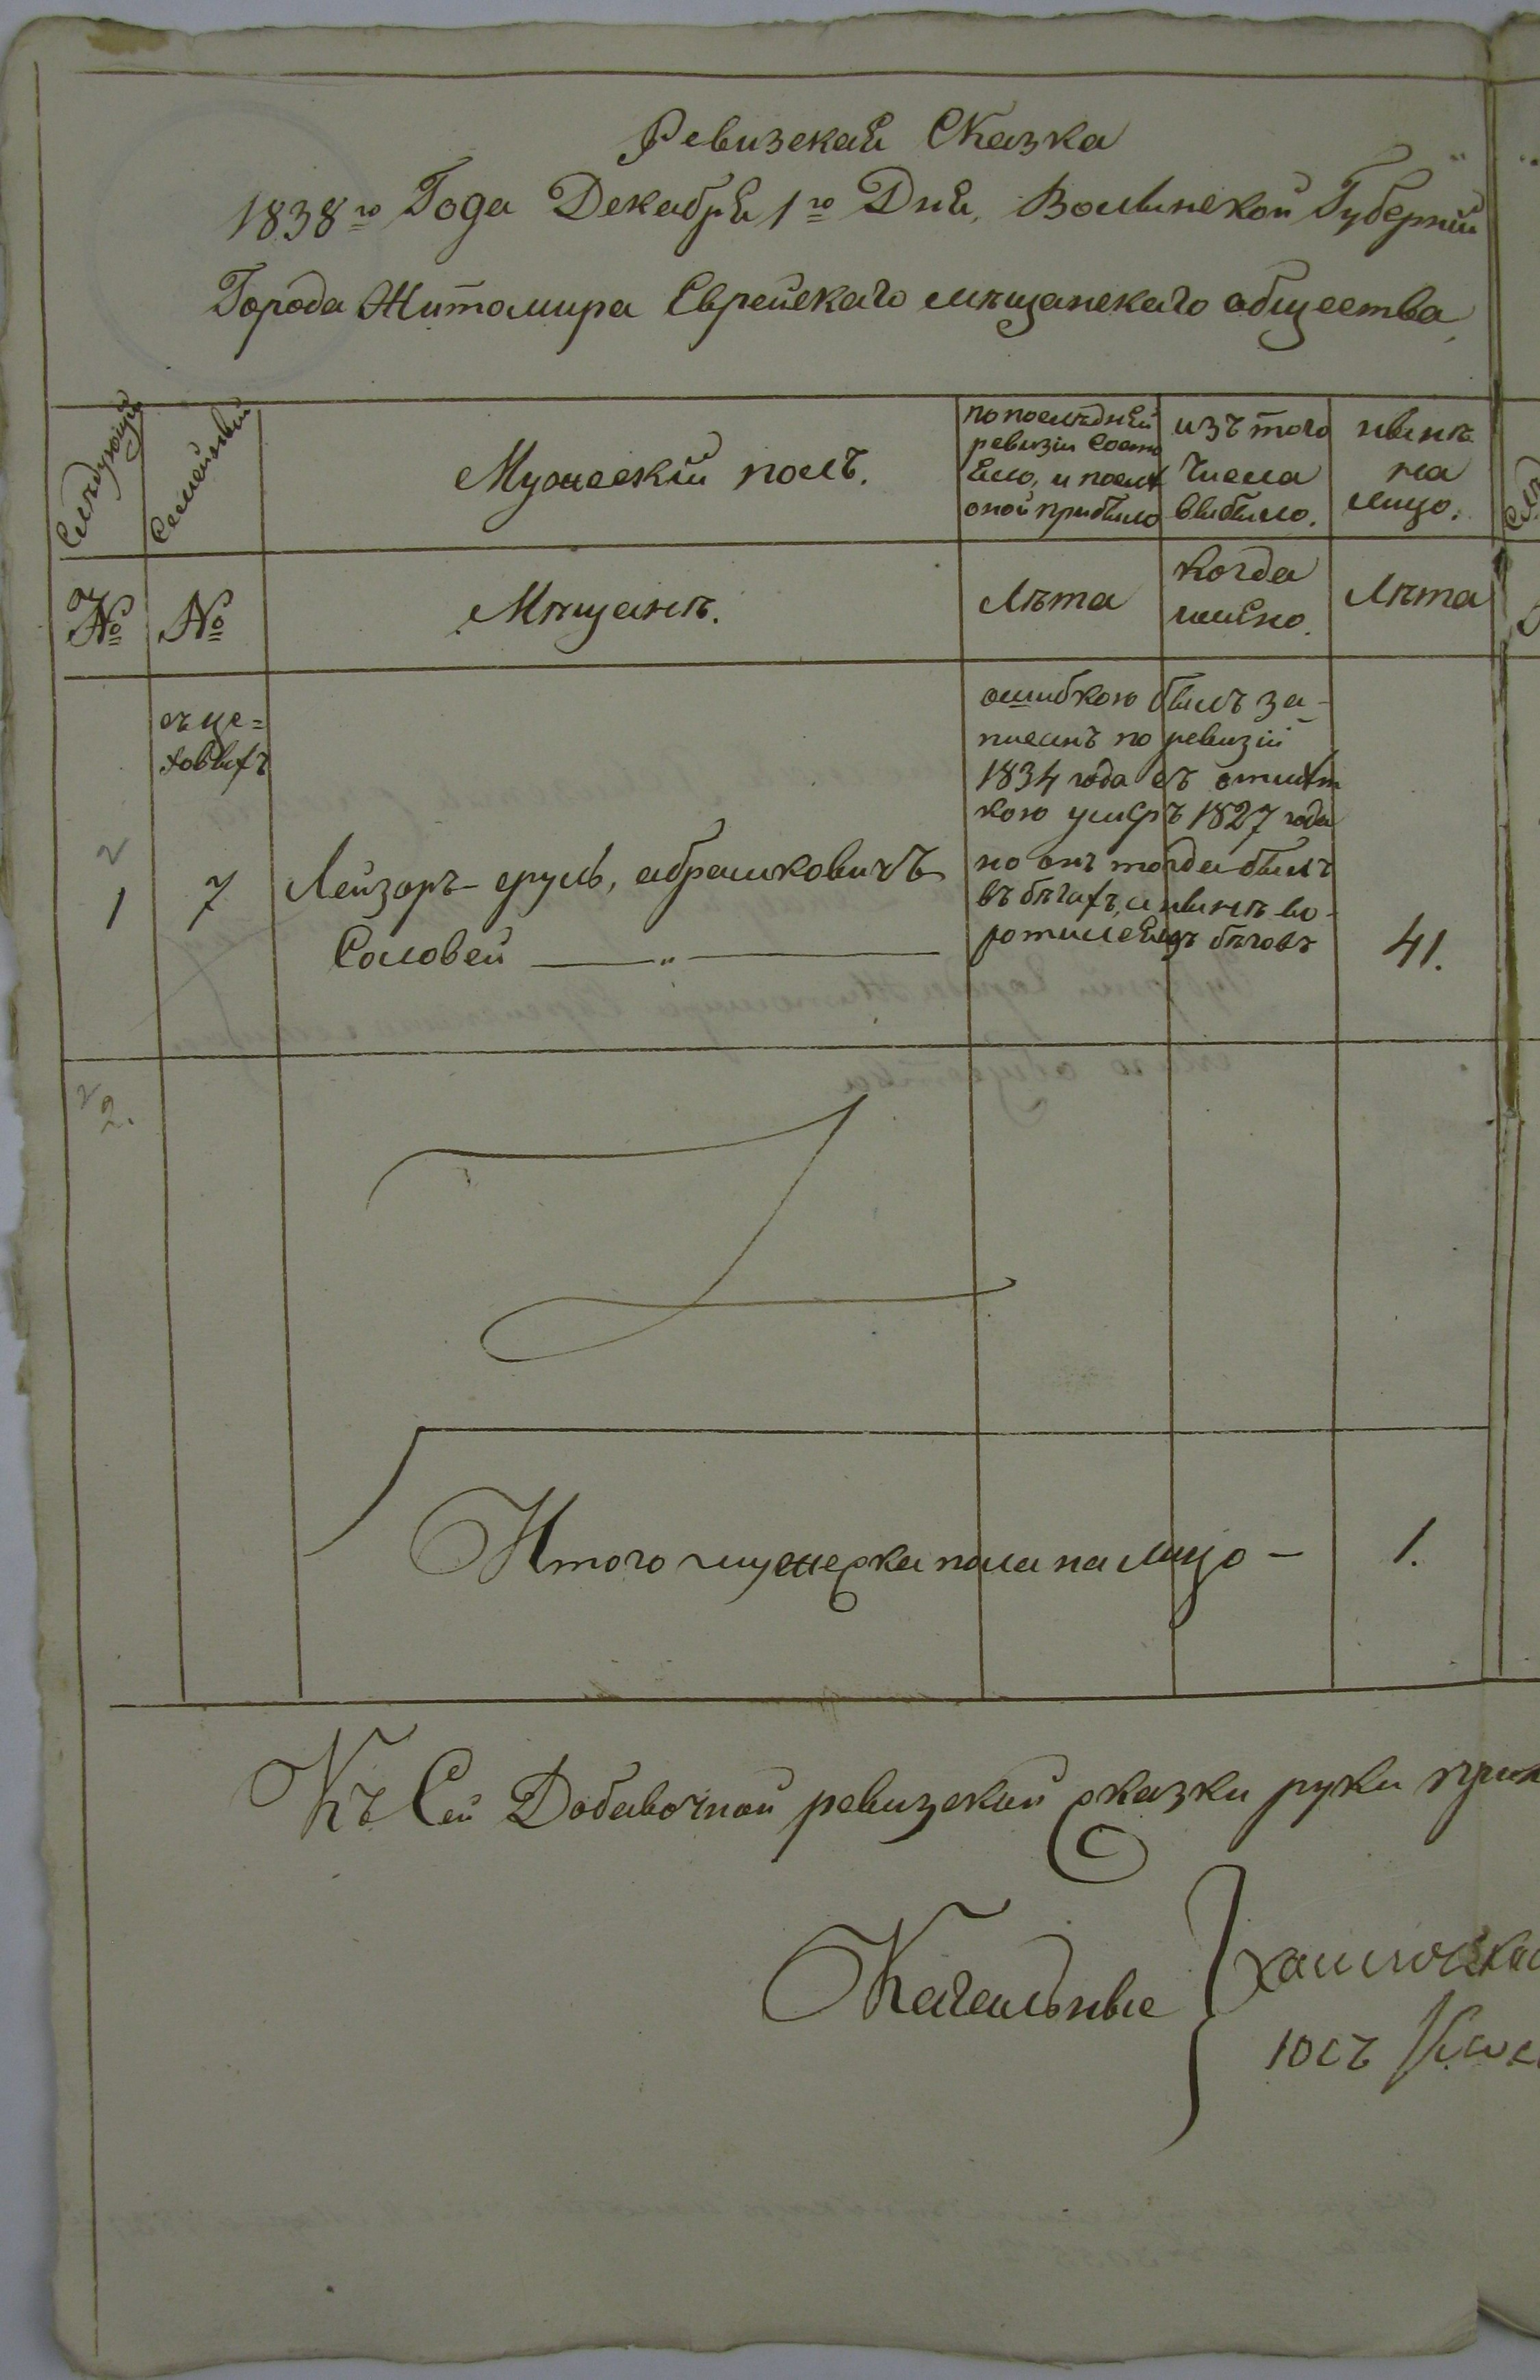 Ревизская Сказка
1838го Года Декабря 1го Дня, Волынской Губернiи
Города Житомира Еврейскаго мѣщанскаго общества
Слѣдующiй
Семейный
Мужескiй полъ.
по послѣдней
ревизiи состо
яло, и послѣ
оной прибыло
изъ того
числа
выбыло.
нынѣ
на
лицо.
№
№
Мѣщанѣ.
Лѣта
когда
имѣно.
Лѣта
съ це=
ховыхъ
1
7
Лейзоръ-сруль, абрамковичъ
Соловей
ошибкою былъ за-
писанъ по ревизiй
1834 года съ отмѣт
кою умеръ 1827 года
но онъ тогда былъ
въ бѣгахъ, а нынѣ во-
ротился изъ бѣговъ
41.
2.
Итого мужеска пола на лицо —
1.
Къ Сей Добавочной ревизской сказки руки прил
Кагальные
юсъ